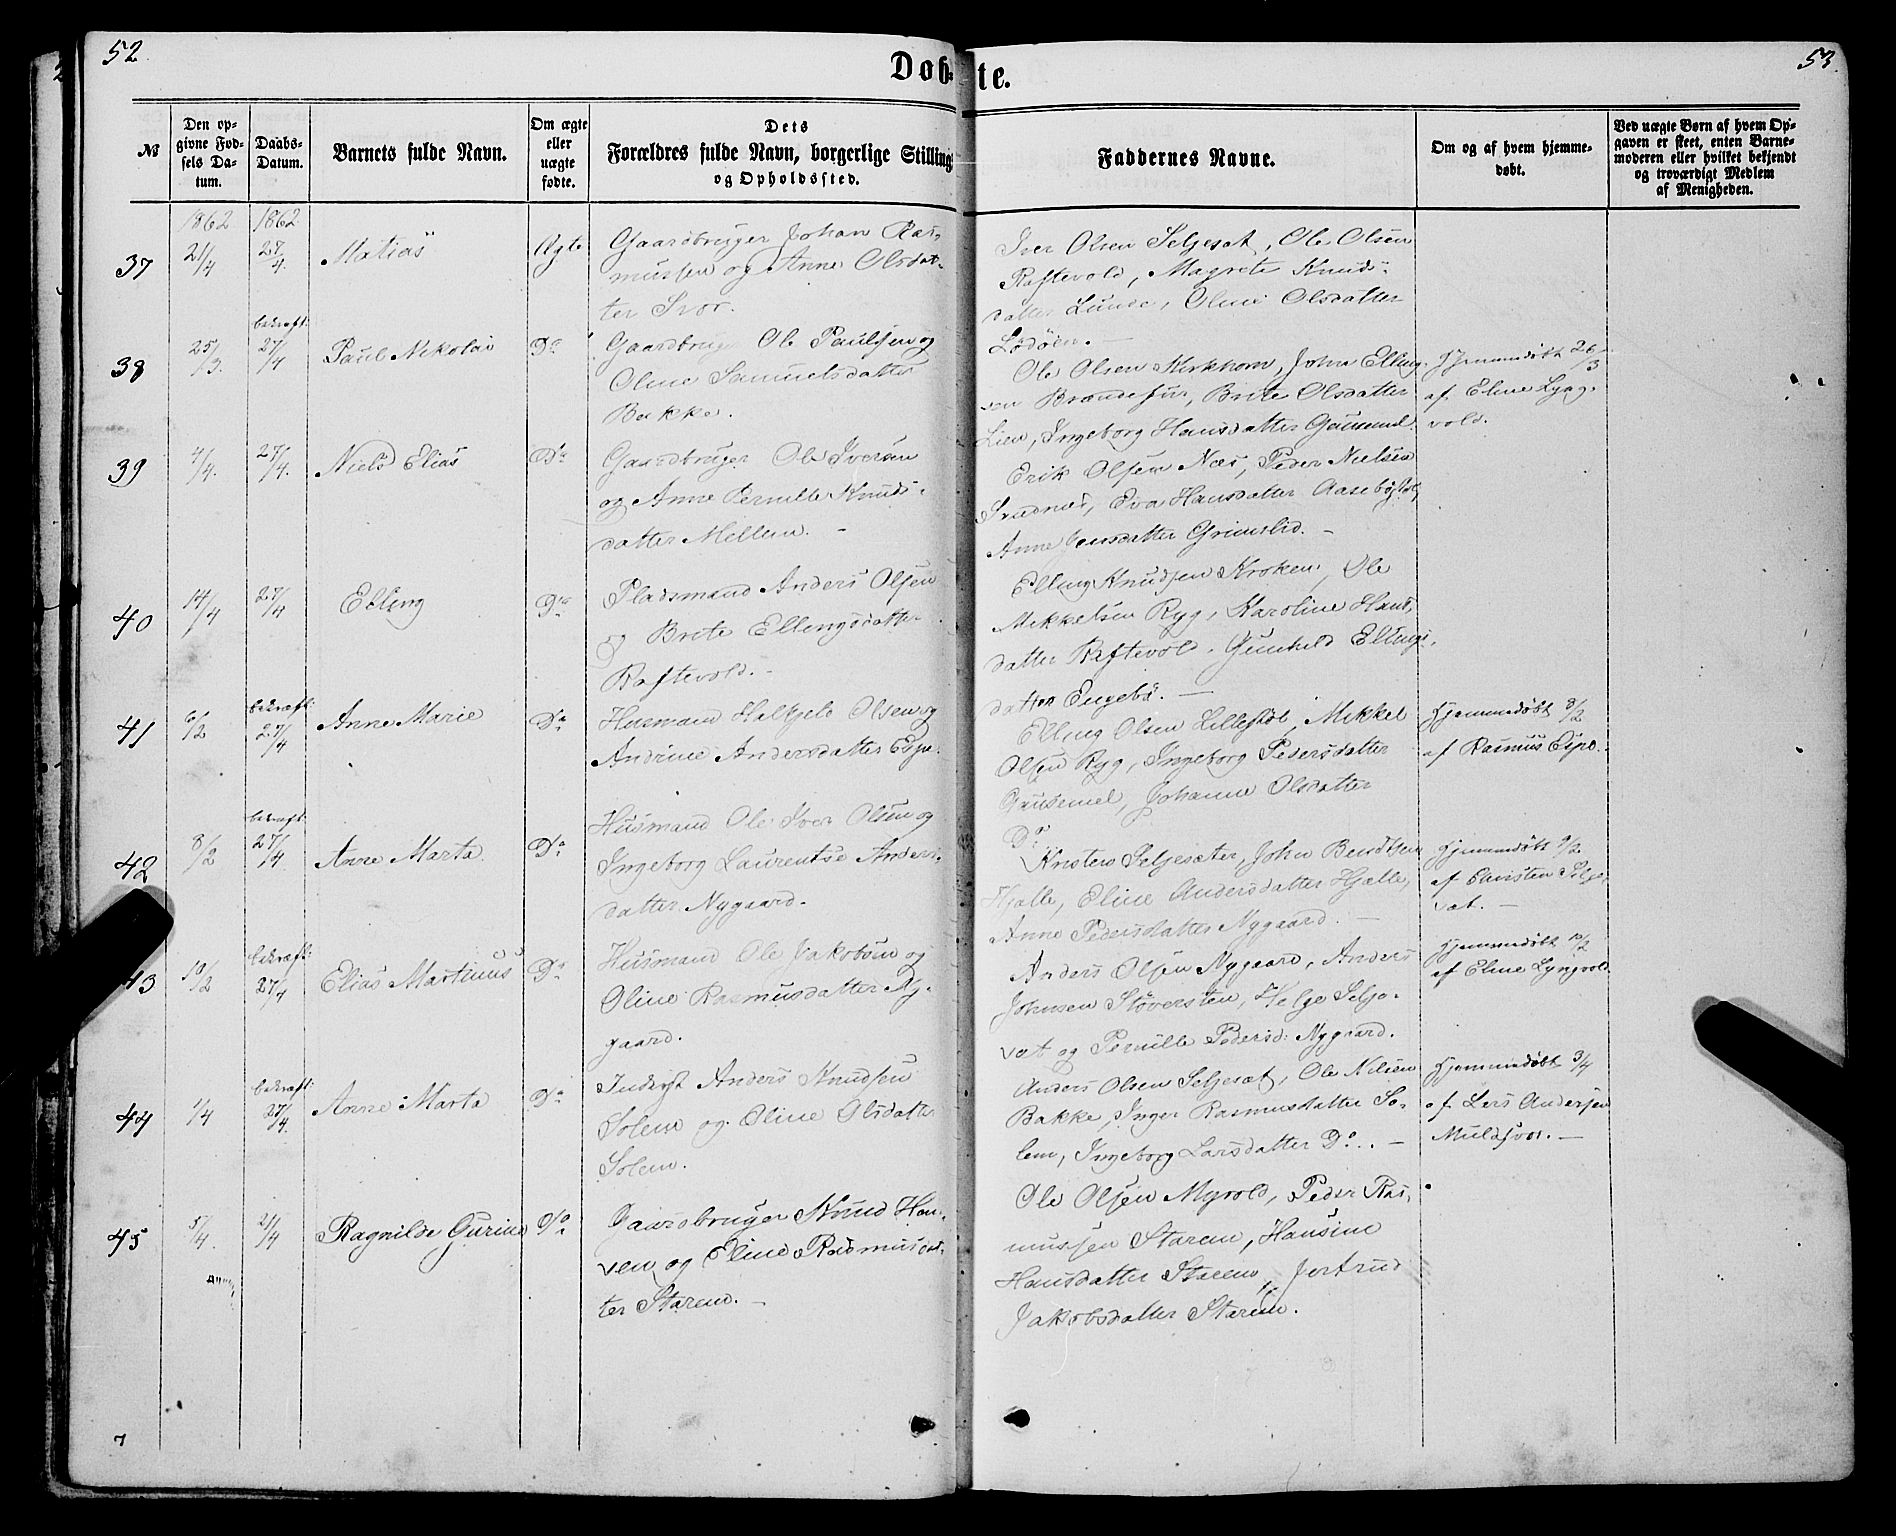 52
53.
Døb-
te.
№
Den op-
givne Fød-
sels Da-
tum.
Daabs-
Datum.
Barnets fulde Navn.
Om ægte
eller
uægte
fødte.
Dets
Forældres fulde Navn, borgerlige Stilling
og Opholdssted.
Faddernes Navne.
Om og af hvem hjemme-
døbt.
Ved uægte Børn af hvem Op-
gaven er skeet, enten Barne-
moderen eller hvilket bekjendt
og troværdigt Medlem
af Menigheden.
1862 1862
37 21/4 27/4. Matias Ægte
Gaardbruger Johan Ras-
mussen og Anne Olsdat-
ter Svor.
Iver Olsen Seljeset, Ole Olsen
Raftevold, Magrete Knuds-
datter Lunde, Oline Olsdatter
Lødøen. —
38 25/3. bekræft: 27/4 Paul Nikolai Do
Gaardbrug Ole Paulsen og
Oline Samuelsdatter
Bakke.
Ole Olsen Kirkhorn, John Elling-
sen Brændefur, Brite Olsdatter
Lien, Ingeborg Hansdatter Gausemel.
Hjemmedøbt 26/3
af Eline Lyng-
vold.
39 4/4. 27/4. Niels Elias Do
Gaardbruger Ole Iversen
og Anne Pernille Knuds-
datter Mellem. —
Erik Olsen Næs, Peder Nielsen
Eva Hansdatter
Anne Grimslid. —
40 14/4 27/4 Elling Do
Pladsmand Anders Olsen
og Brite Ellingsdatter
Raftevold. —
Elling Knudsen Kroken, Ole
Mikkelsen Ryg, Karoline Hans-
datter Raftevold, Gunhild Ellings-
datter Engebø. —
41 6/2 bekræft: 27/4 Anne Marie Do
Husmand Halkjeld Olsen og
Andrine Andersdatter Espe.
Elling Olsen Mikkel
Olsen Ryg, Ingeborg Pedersdatter
Gausemel, Johanne Olsdatter
Do
Hjemmedøbt 8/2
af Rasmus Espe.
42 8/2 bekræft: 27/4 Anne Marta Do
Husmand Ole Iver Olsen og
Ingeborg Laurentse Anders-
datter Nygaard.
Kristen Seljesæter, John Bendtsen
Hjelle, Eline Andersdatter Hjelle,
Anne Pedersdatter Nygaard. —
Hjemmedøbt 9/2
af Christen Selje-
sæt. —
43 10/2 bekræft: 27/4 Elias Martinus Do
Husmand Ole Jakobsen og
Oline Rasmusdatter Ny-
gaard.
Anders Olsen Nygaard, Anders
Johnsen Støversten, Helge Selje-
sæt og Pernille Pedersd: Nygaard.
Hjemmedøbt
af Eline Lyngvold.
44 1/4 bekræft: 27/4. Anne Marta Do
Inderst Anders Knudsen
Solem og Oline Olsdatter
Solem.
Anders Olsen Seljesæt, Ole Nilsen
Bakke, Inger Rasmusdatter So-
lem, Ingeborg Larsdatter Do. —
Hjemmedøbt 3/4
af Lars Andersen
Muldsvor. —
45 5/4. 21/4 Ragnilde Gurine Do
Gaardbruger Knud Han-
sen og Eline Rasmusdat-
ter Starem. —
Ole Olsen Myrold, Peder Ras-
mussen Starem, Hansine
Hansdatter Starem, Jertrud
Jakobsdatter Starem.
7